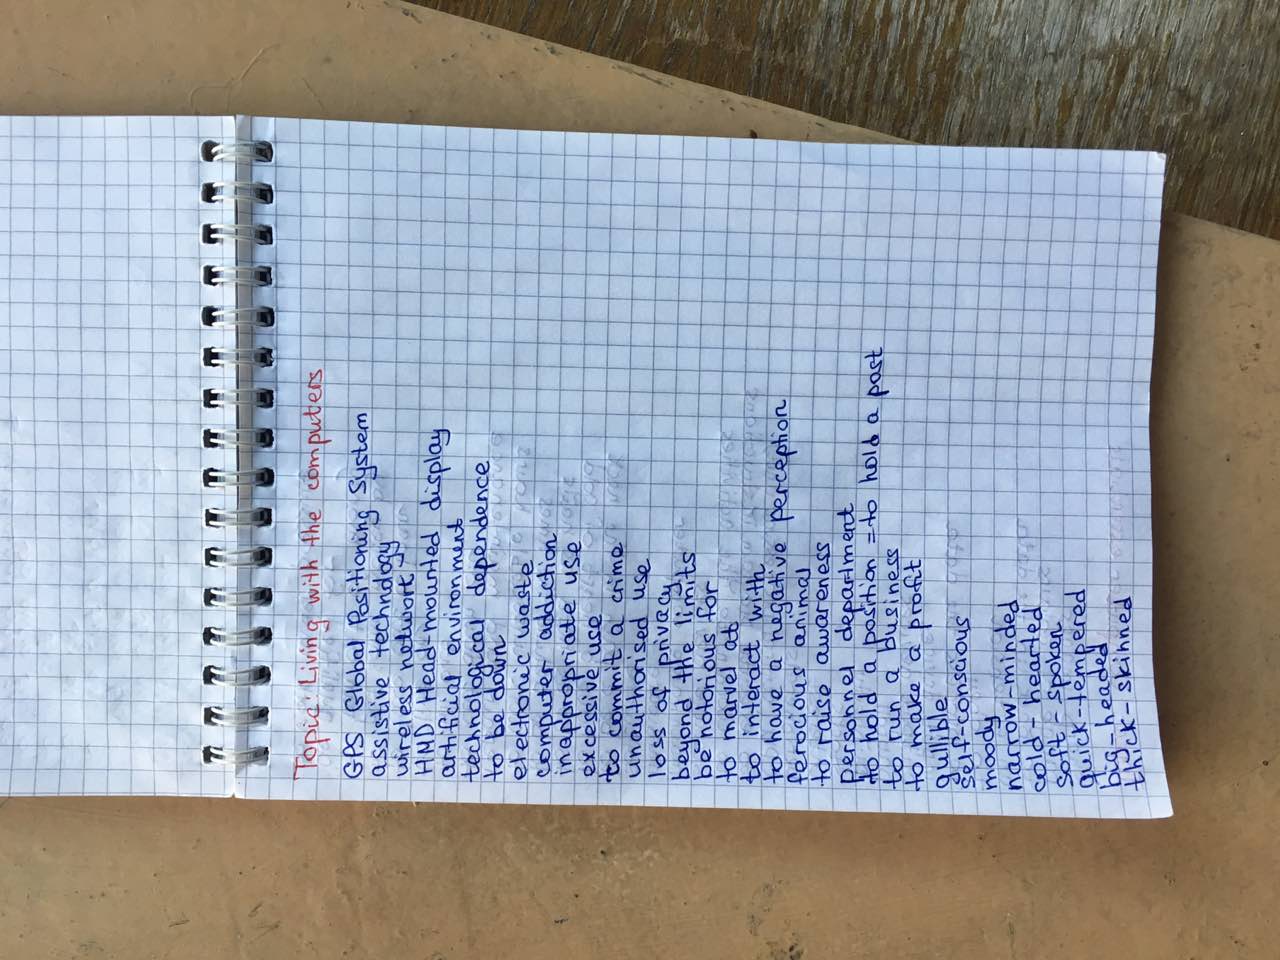 Topic: Living with the computers
GPS Global Positioning System
assistive technology
wireless network
HMD Head-mounted display
artificial environment
technological dependence
to be down
electronic waste
computer addiction
inappropriate use
excessive use
to commit a crime
unauthorised use
loss of privacy
beyond the limits
be notorious for
to marvel at
to interact with
to have a negative perception
ferocious animal
to raise awareness
personnel department
to hold a position = to hold a post
to run a business
to make a profit
gullible
self-conscious
moody
narrow-minded
cold-hearted
soft-spoken
quick-tempered
big-headed
thick-skinned